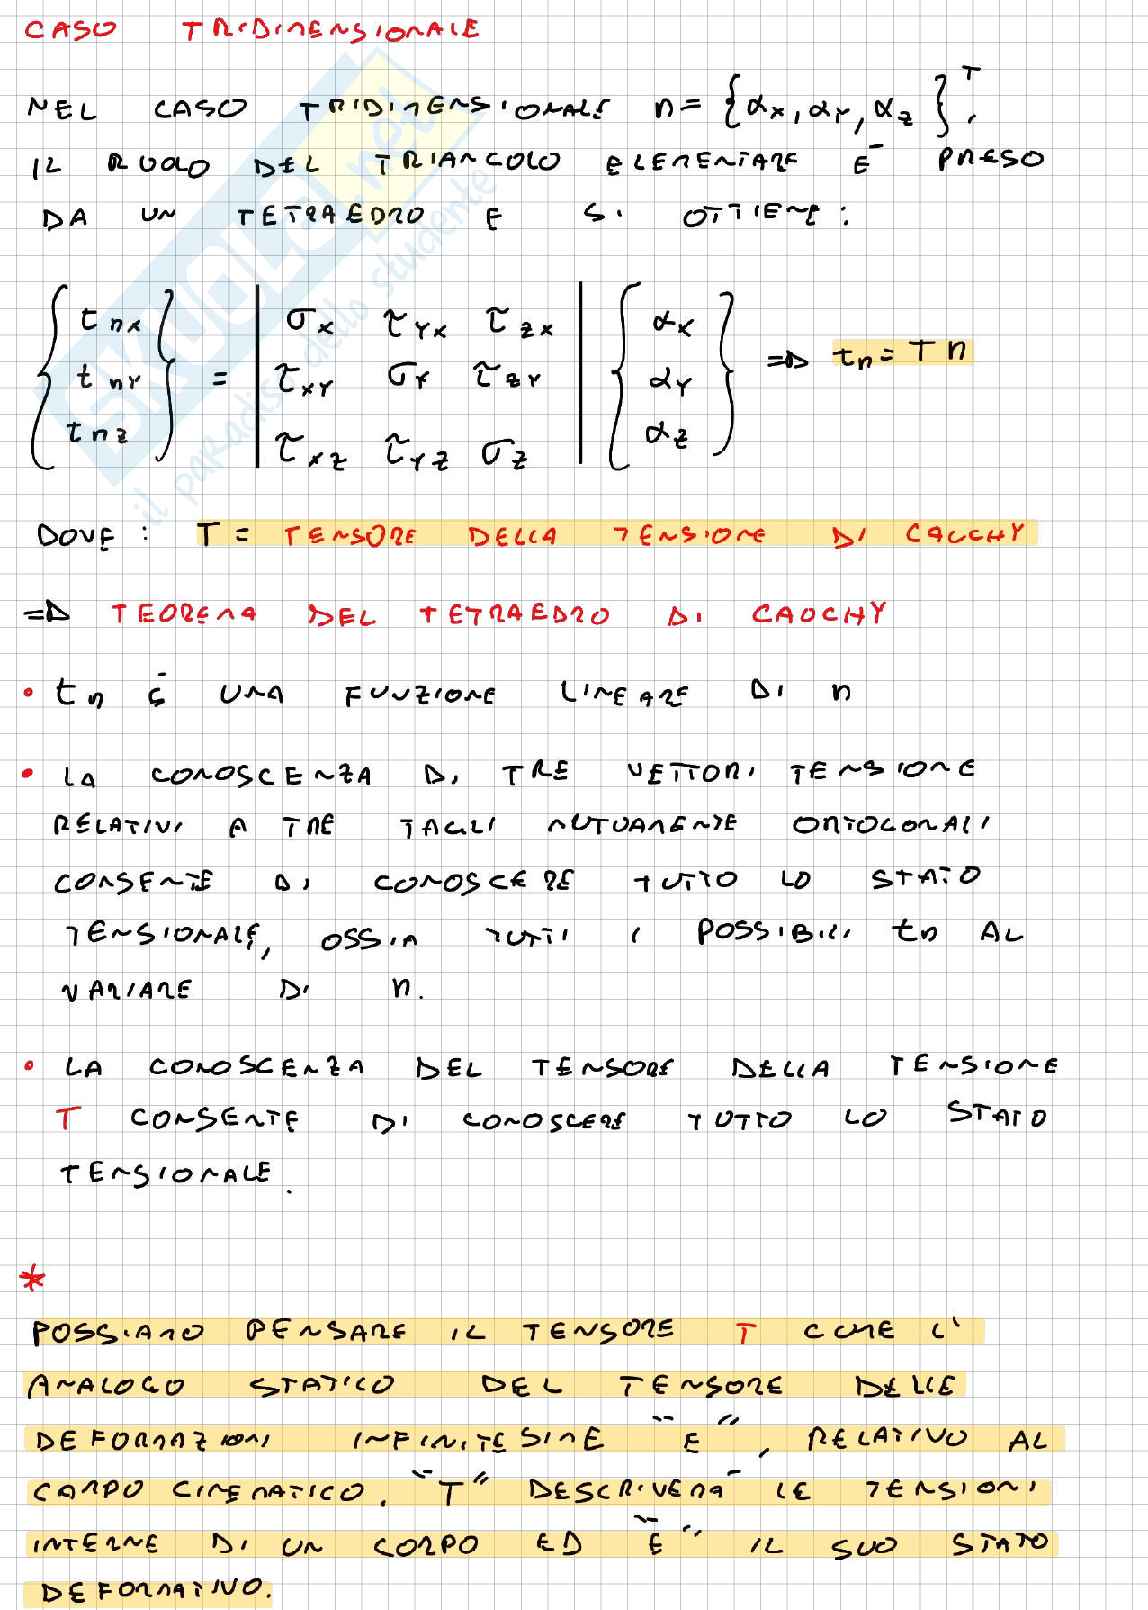 CASO TRIDIMENSIONALE
NEL CASO TRIDIMENSIONALE n = {αx, αy, αz}ᵀ,
IL RUOLO DEL TRIANGOLO ELEMENTARE È PRESO
DA UN TETRAEDRO E SI OTTIENE:
{tnx = |σx τyx τzx| {αx
tny τxy σy τzy αy ⇒ tn = T n
tnz} τxz τyz σz αz}
DOVE: T = TENSORE DELLA TENSIONE DI CAUCHY
⇒ TEOREMA DEL TETRAEDRO DI CAUCHY
• tn È UNA FUNZIONE LINEARE DI n
• LA CONOSCENZA DI TRE VETTORI TENSIONE
RELATIVI A TRE TAGLI MUTUAMENTE ORTOGONALI
CONSENTE DI CONOSCERE TUTTO LO STATO
TENSIONALE, OSSIA TUTTI I POSSIBILI tn AL
VARIARE DI n.
• LA CONOSCENZA DEL TENSORE DELLA TENSIONE
T CONSENTE DI CONOSCERE TUTTO LO STATO
TENSIONALE.
*
POSSIAMO PENSARE IL TENSORE T COME L'
ANALOGO STATICO DEL TENSORE DELLE
DEFORMAZIONI INFINITESIME "E", RELATIVO AL
CAMPO CINEMATICO. "T" DESCRIVERÀ LE TENSIONI
INTERNE DI UN CORPO ED "E" IL SUO STATO
DEFORMATIVO.
SKUOLA.net
il paradiso dello studente